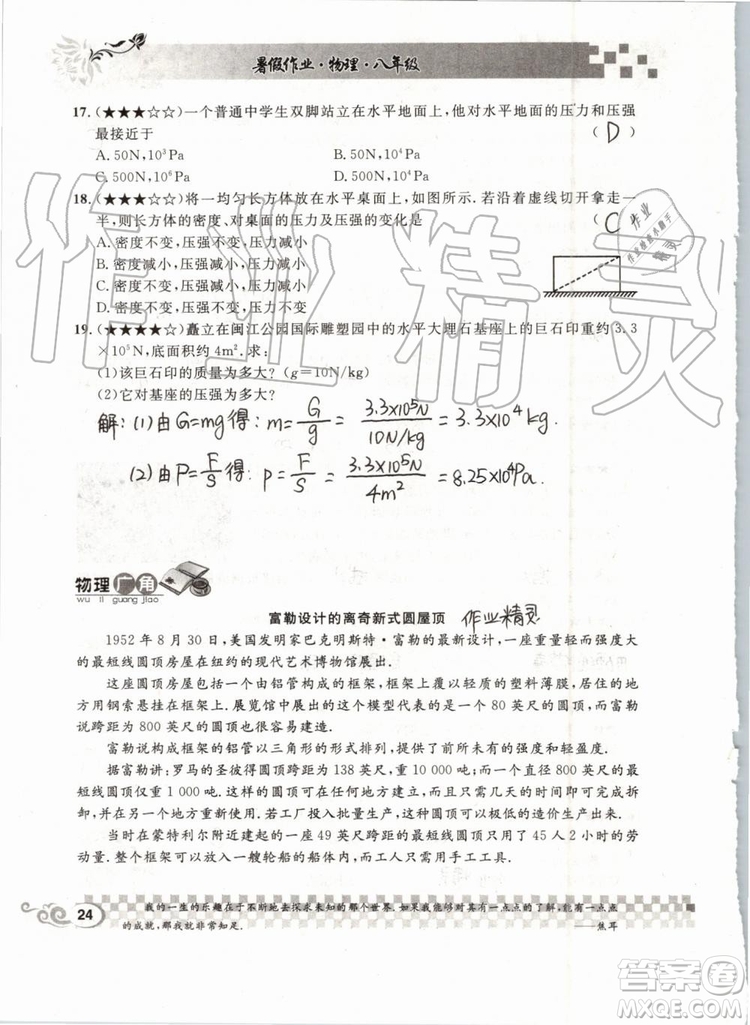 暑假作业·物理·八年级
17.(★★★☆☆)一个普通中学生双脚站立在水平地面上,他对水平地面的压力和压强
最接近于 ( D )
A. 50N,10³Pa B. 50N,10⁴Pa
C. 500N,10⁶Pa D. 500N,10⁴Pa
18.(★★★☆☆)将一均匀长方体放在水平桌面上,如图所示.若沿着虚线切开拿走一
半,则长方体的密度、对桌面的压力及压强的变化是 ( C )
A. 密度不变,压强不变,压力减小
B. 密度减小,压强减小,压力减小
C. 密度不变,压强减小,压力减小
D. 密度不变,压强不变,压力不变
19.(★★★★☆)矗立在闽江公园国际雕塑园中的水平大理石基座上的巨石印重约3.3
×10⁵N,底面积约4m².求:
(1)该巨石印的质量为多大?(g=10N/kg)
(2)它对基座的压强为多大?
解:(1)由G=mg得:m=G/g=3.3×10⁵N/10N/kg=3.3×10⁴kg.
(2)由P=F/S得:p=F/S=3.3×10⁵N/4m²=8.25×10⁴Pa.
物理广角
wu li guang jiao
富勒设计的离奇新式圆屋顶 作业精灵
1952年8月30日,美国发明家巴克明斯特·富勒的最新设计,一座重量轻而强度大
的最短线圆顶房屋在纽约的现代艺术博物馆展出.
这座圆顶房屋包括一个由铝管构成的框架,框架上覆以轻质的塑料薄膜,居住的地
方用绝缘的玻璃纤维制成.展览馆中展出的这个模型代表的是一个80英尺的圆顶,而富勒
知道跨距为800英尺的圆顶也很容易建造.
富勒说构成框架的铝管以三角形的形式排列,提供了前所未有的强度和轻型.
据富勒讲:罗马的圣彼得圆顶跨距为138英尺,重约1 000吨,而他的跨距800英尺的圆
顶也只有1 000吨.这种圆顶轻便,无需内部支撑,因此安装起来也很快,只需几天的时间,并且可以拆
卸,并在另一个地方方重新建造.若工厂投入批量生产,可以以极低的造价生产出来.
当时在蒙特利尔附近建起的一座49英尺跨距的最短线圆顶只用了45人2小时的劳
动量.整个框架可放入一艘轮船的船体内,安装也无需用手工工具.
24
我的一生的乐趣在于不断地去探求未知的那个世界.如果我能够对其有一点点的了解,能有一点点
的成就,那我就非常知足. ——焦耳
作业精灵
答案圈
MXQE.COM